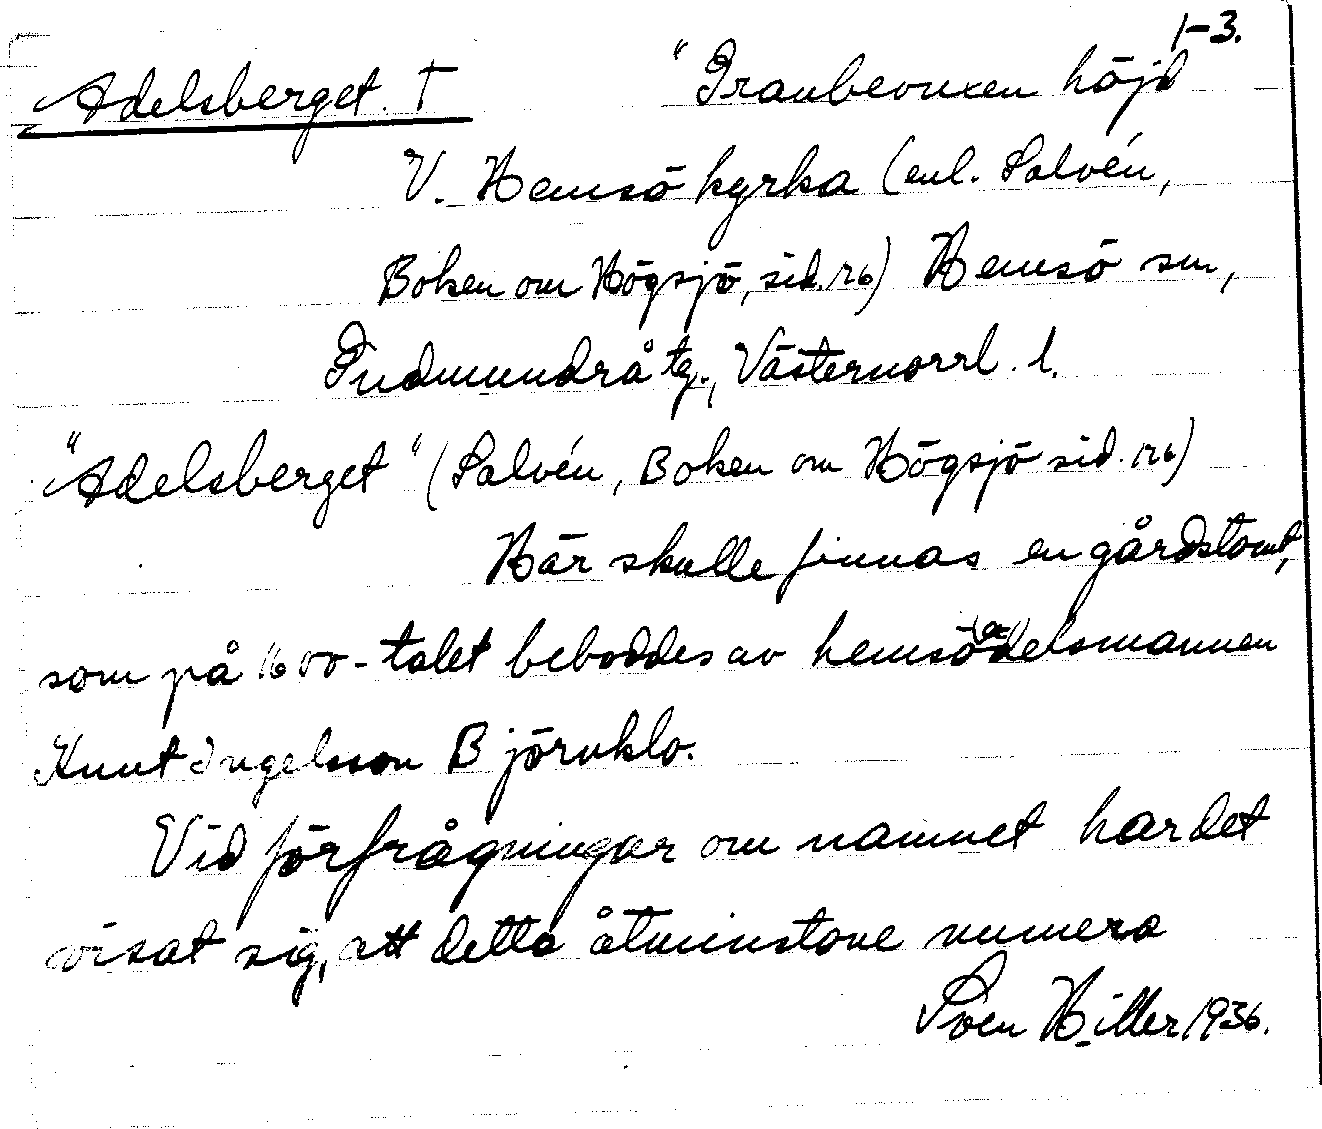 1-3.
Adelsberget. † "Granbevuxen höjd
V. Hemsö kyrka (enl. Salvén,
Boken om Högsjö, sid. 126) Hemsö sn,
Gudmundrå tg., Västernorrl. l.
"Adelsberget" (Salvén, Boken om Högsjö sid. 126)
Här skulle finnas en gårdstomt,
som på 1600-talet beboddes av hemsöadelsmannen
Knut Ingelsson Björnklo.
Vid förfrågningar om namnet har det
visat sig, att detta åtminstone numera
Sven Hiller 1936.